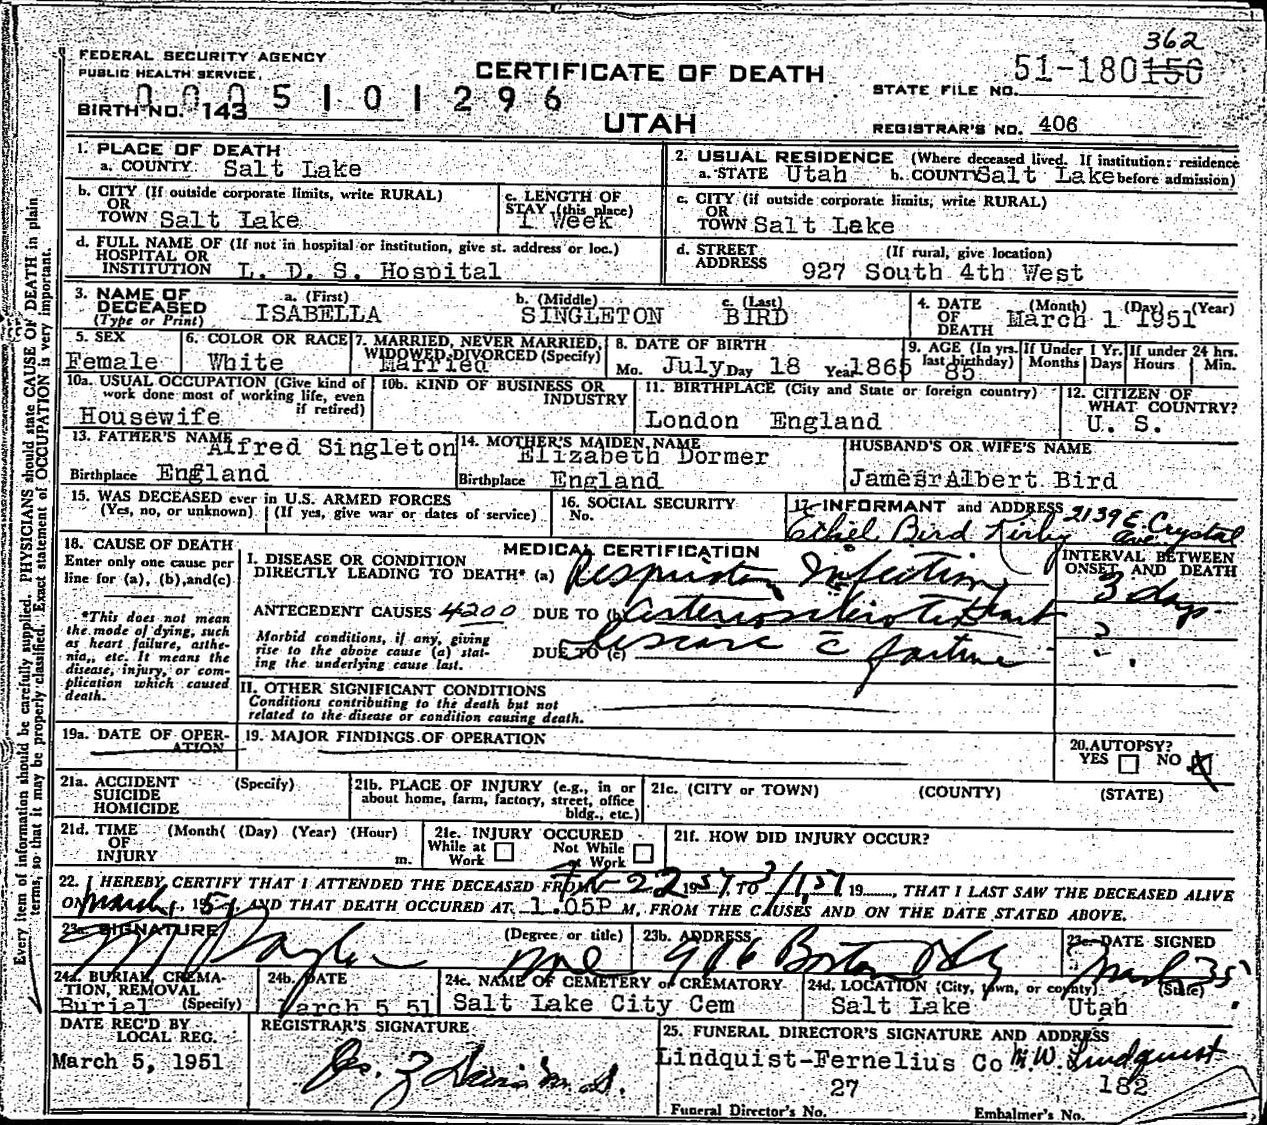 FEDERAL SECURITY AGENCY
PUBLIC HEALTH SERVICE
BIRTH NO. 143
0005101296
CERTIFICATE OF DEATH
UTAH
362
51-180150
STATE FILE NO.
REGISTRAR'S NO. 406
1. PLACE OF DEATH
a. COUNTY Salt Lake
2. USUAL RESIDENCE (Where deceased lived. If institution: residence before admission)
a. STATE Utah b. COUNTY Salt Lake
b. CITY (If outside corporate limits, write RURAL)
OR
TOWN Salt Lake
c. LENGTH OF
STAY (this place)
1 Week
c. CITY (if outside corporate limits, write RURAL)
OR
TOWN Salt Lake
d. FULL NAME OF (If not in hospital or institution, give st. address or loc.)
HOSPITAL OR
INSTITUTION L. D. S. Hospital
d. STREET (If rural, give location)
ADDRESS 927 South 4th West
3. NAME OF
DECEASED
(Type or Print)
a. (First) b. (Middle) c. (Last)
ISABELLA SINGLETON BIRD
4. DATE
OF
DEATH
(Month) (Day) (Year)
March 1 1951
5. SEX
Female
6. COLOR OR RACE
White
7. MARRIED, NEVER MARRIED,
WIDOWED, DIVORCED (Specify)
Married
8. DATE OF BIRTH
Mo. July Day 18 Year 1865
9. AGE (In yrs. last birthday)
85
If Under 1 Yr. If under 24 hrs.
Months Days Hours Min.
10a. USUAL OCCUPATION (Give kind of
work done most of working life, even
if retired)
Housewife
10b. KIND OF BUSINESS OR
INDUSTRY
11. BIRTHPLACE (City and State or foreign country)
London England
12. CITIZEN OF
WHAT COUNTRY?
U. S.
13. FATHER'S NAME Alfred Singleton
Birthplace England
14. MOTHER'S MAIDEN NAME
Elizabeth Dormer
Birthplace England
HUSBAND'S OR WIFE'S NAME
James Albert Bird
15. WAS DECEASED ever in U.S. ARMED FORCES
(Yes, no, or unknown) (If yes, give war or dates of service)
16. SOCIAL SECURITY
No.
17. INFORMANT and ADDRESS 2139 E. Crystal
Ethel Bird Kirby Ave.
18. CAUSE OF DEATH
Enter only one cause per
line for (a), (b), and (c)
*This does not mean
the mode of dying, such
as heart failure, asthe-
nia,, etc. It means the
disease, injury, or com-
plication which caused
death.
MEDICAL CERTIFICATION
I. DISEASE OR CONDITION
DIRECTLY LEADING TO DEATH* (a) Respiratory Infection
ANTECEDENT CAUSES 4200 DUE TO (b) Arteriosclerotic Heart
Morbid conditions, if any, giving
rise to the above cause (a) stat-
ing the underlying cause last.
DUE TO (c) Disease c̄ failure
INTERVAL BETWEEN
ONSET AND DEATH
3 days
?
?
II. OTHER SIGNIFICANT CONDITIONS
Conditions contributing to the death but not
related to the disease or condition causing death.
19a. DATE OF OPER-
ATION
19. MAJOR FINDINGS OF OPERATION
20. AUTOPSY?
YES NO X
21a. ACCIDENT (Specify)
SUICIDE
HOMICIDE
21b. PLACE OF INJURY (e.g., in or
about home, farm, factory, street, office
bldg., etc.)
21c. (CITY or TOWN) (COUNTY) (STATE)
21d. TIME (Month( (Day) (Year) (Hour)
OF
INJURY m.
21e. INJURY OCCURED
While at Not While
Work at Work
21f. HOW DID INJURY OCCUR?
22. I HEREBY CERTIFY THAT I ATTENDED THE DECEASED FROM Feb 22 1951, TO 3/1, 51 19, THAT I LAST SAW THE DECEASED ALIVE
ON March 1, 1951 AND THAT DEATH OCCURED AT 1.05P M, FROM THE CAUSES AND ON THE DATE STATED ABOVE.
23a. SIGNATURE (Degree or title)
23b. ADDRESS
906 Boston Bldg
23c. DATE SIGNED
24a. BURIAL, CREMA-
TION, REMOVAL
Burial (Specify)
24b. DATE
March 5 51
24c. NAME OF CEMETERY or CREMATORY
Salt Lake City Cem
24d. LOCATION (City, town, or county) (State)
Salt Lake Utah
DATE REC'D BY
LOCAL REG.
March 5, 1951
REGISTRAR'S SIGNATURE
25. FUNERAL DIRECTOR'S SIGNATURE AND ADDRESS
Lindquist-Fernelius Co M.W. Lindquist
27 182
Funeral Director's No. Embalmer's No.
Every item of information should be carefully supplied. PHYSICIANS should state CAUSE OF DEATH in plain
terms, so that it may be properly classified. Exact statement of OCCUPATION is very important.